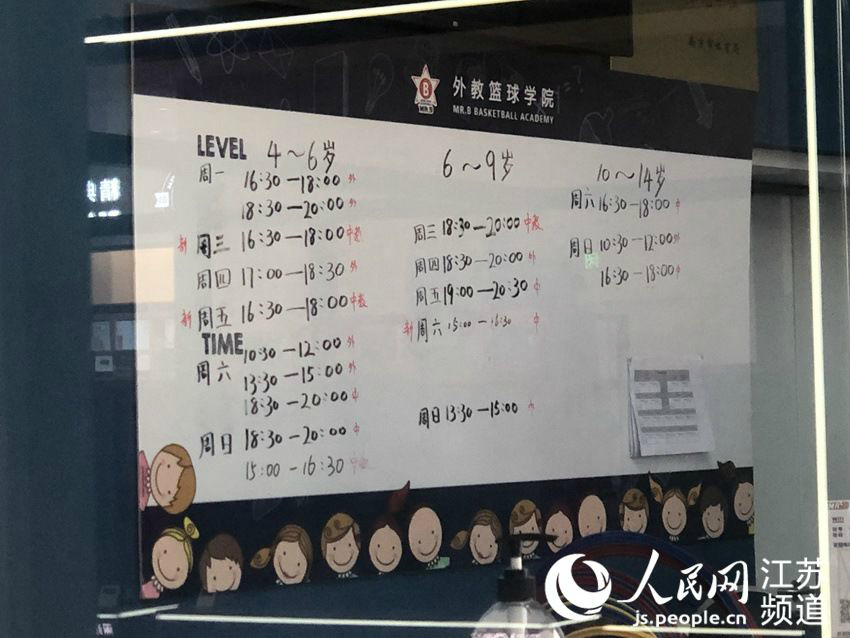 外教篮球学院
MR.B BASKETBALL ACADEMY
B
MR.B
LEVEL 4～6岁
周一 16:30—18:00 外
18:30—20:00 外
新 周三 16:30—18:00 中教
周四 17:00—18:30 外
新 周五 16:30—18:00 中教
TIME
10:30—12:00 外
周六 13:30—15:00 外
18:30—20:00 中
周日 18:30—20:00 中
15:00—16:30
6～9岁
周三 18:30—20:00 中教
周四 18:30—20:00 外
周五 19:00—20:30 中
新 周六 15:00—16:30 中
周日 13:30—15:00 中
10～14岁
周六 16:30—18:00 中
周日 10:30—12:00 外
16:30—18:00 中
人民网
江苏
频道
js.people.cn